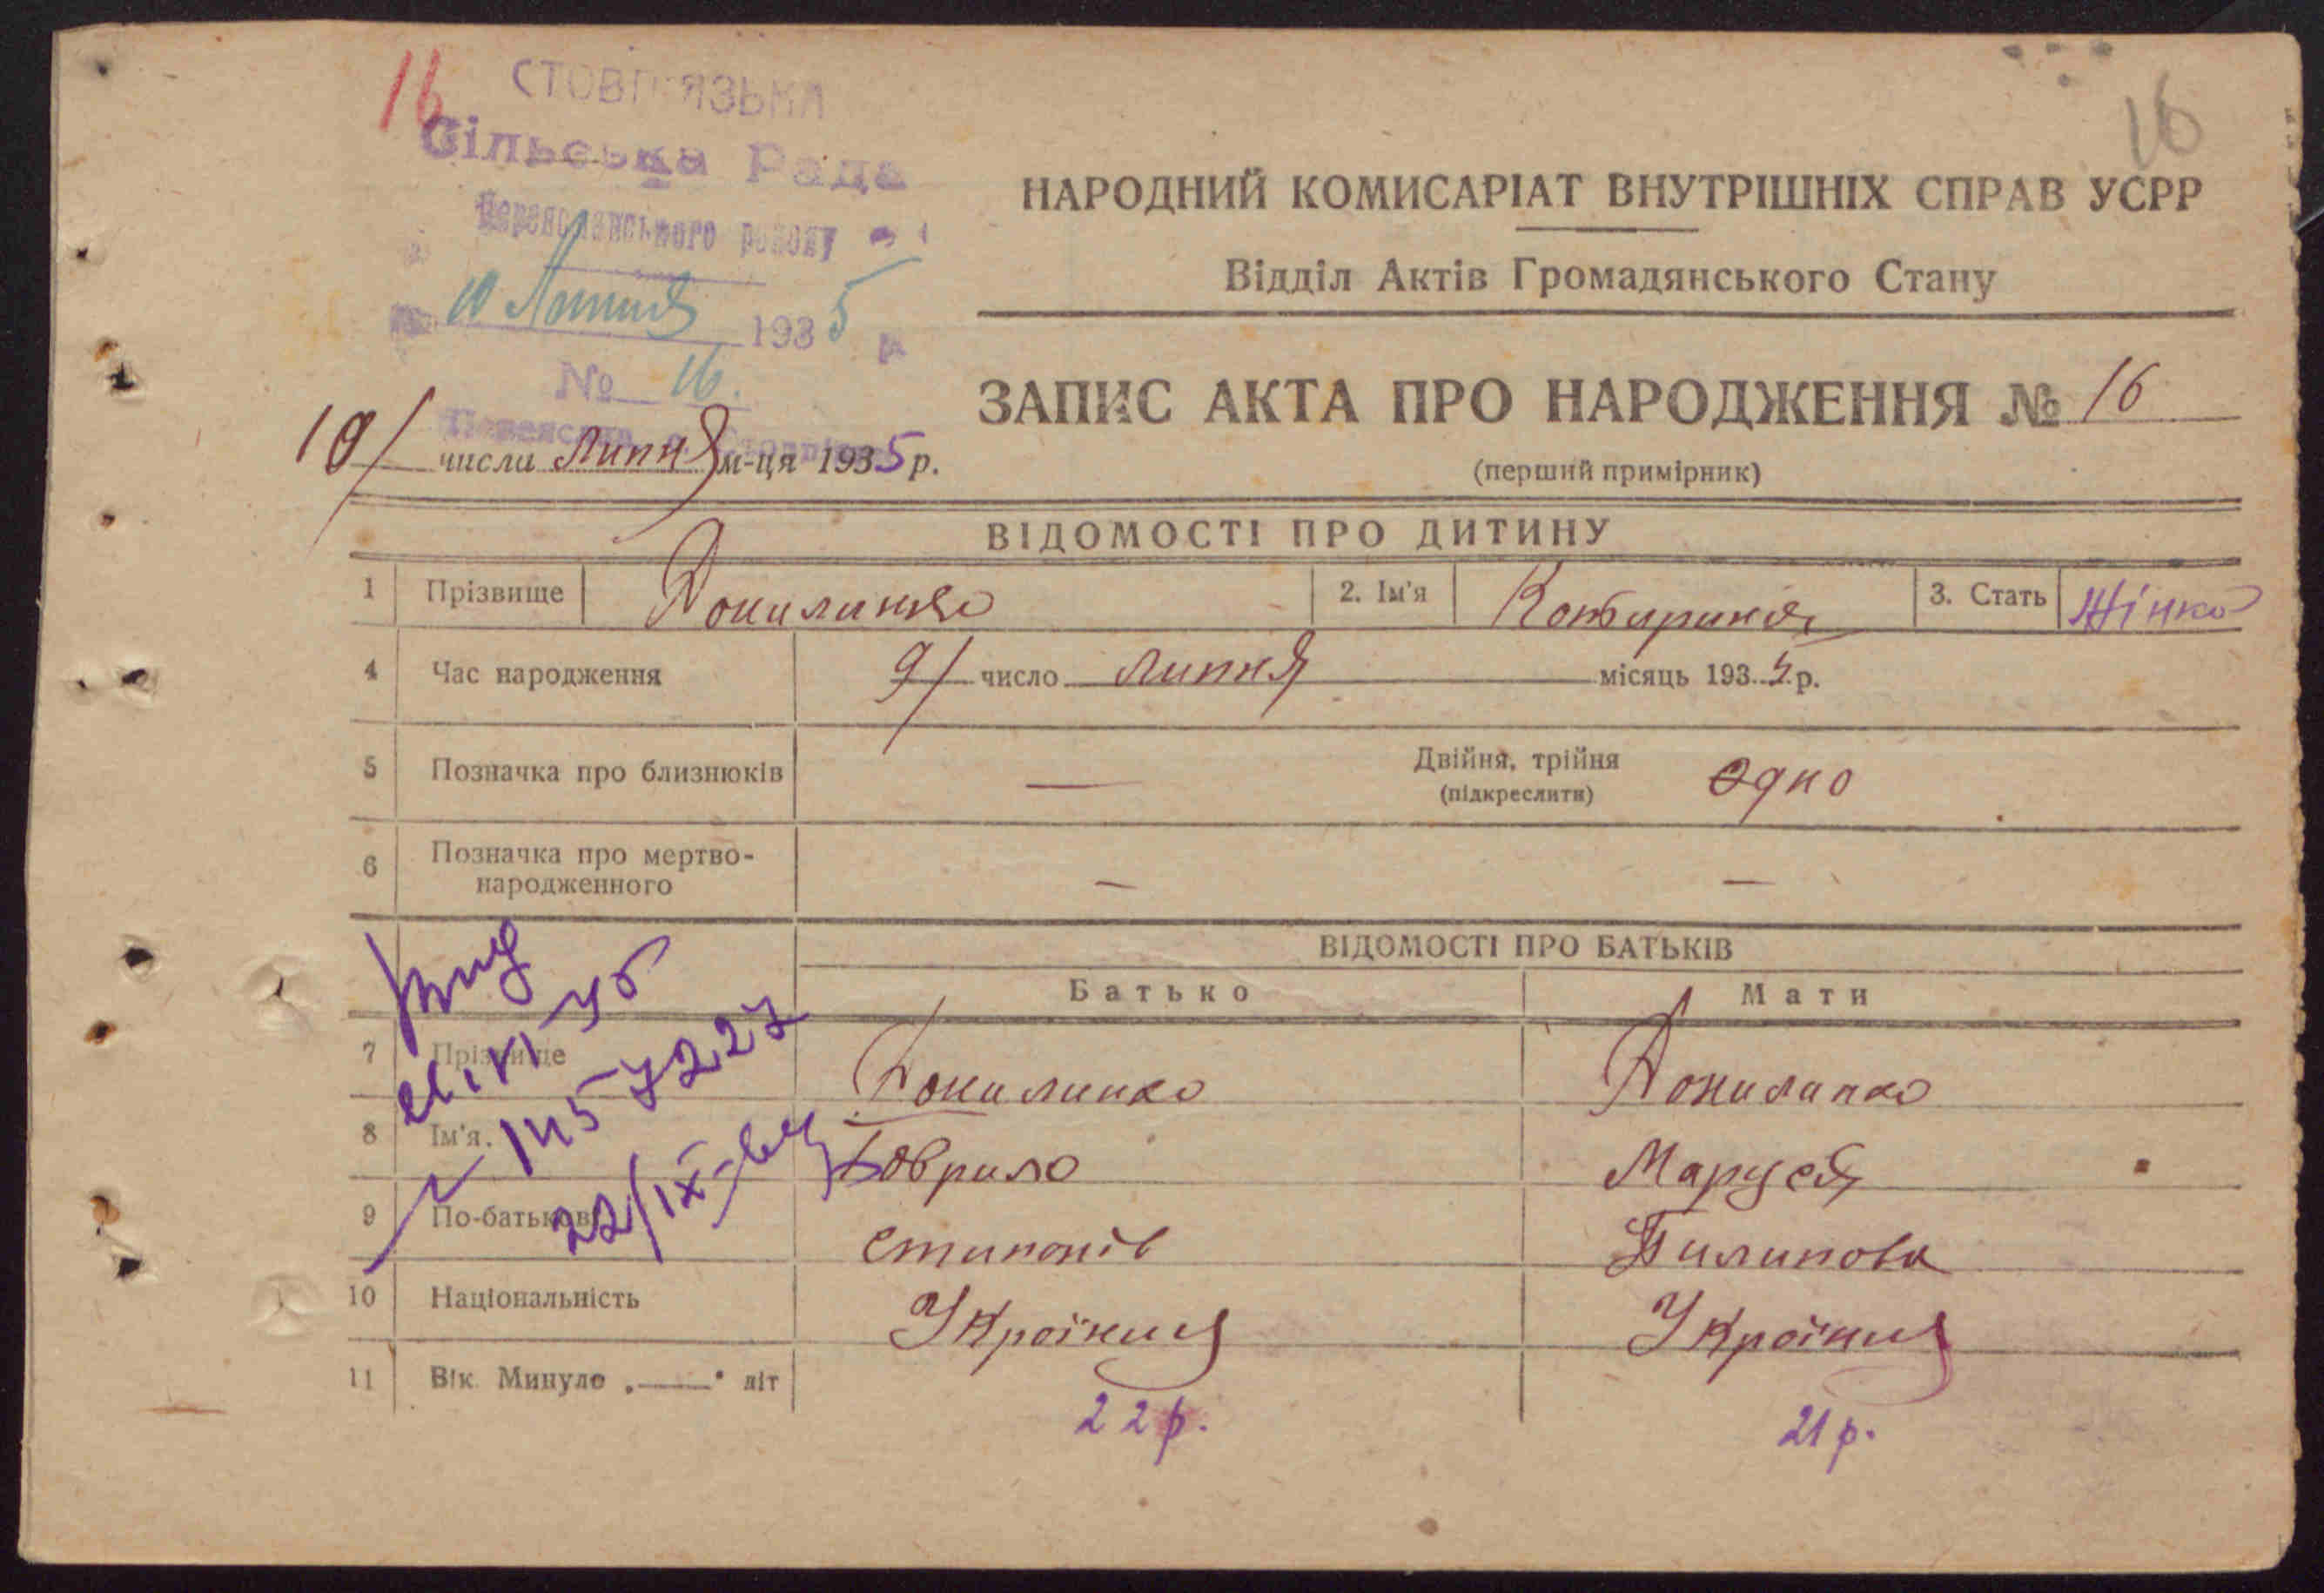 16
СТОВП'ЯЗЬКА
Сільська Рада
Переяславського району
10 Липня 1935 р
№ 16.
16
НАРОДНИЙ КОМИСАРІАТ ВНУТРІШНІХ СПРАВ УСРР
Відділ Актів Громадянського Стану
ЗАПИС АКТА ПРО НАРОДЖЕННЯ № 16
(перший примірник)
10/ числа Липня м-ця 1935 р.
ВІДОМОСТІ ПРО ДИТИНУ
1 Прізвище 2. Ім'я Катирина 3. Стать Жінка
4 Час народження 9/ число Липня місяць 1935 р.
5 Позначка про близнюків — Двійня, трійня (підкреслити) Одно
6 Позначка про мертво-
народженного — —
ВІДОМОСТІ ПРО БАТЬКІВ
Батько Мати
7 Прізвище
8 Ім'я. Гаврило Маруся
9 По-батькові Пилипова
10 Національність Україниц Україниц
11 Вік. Минуло „——" літ 22 р. 21 р.
22/IX